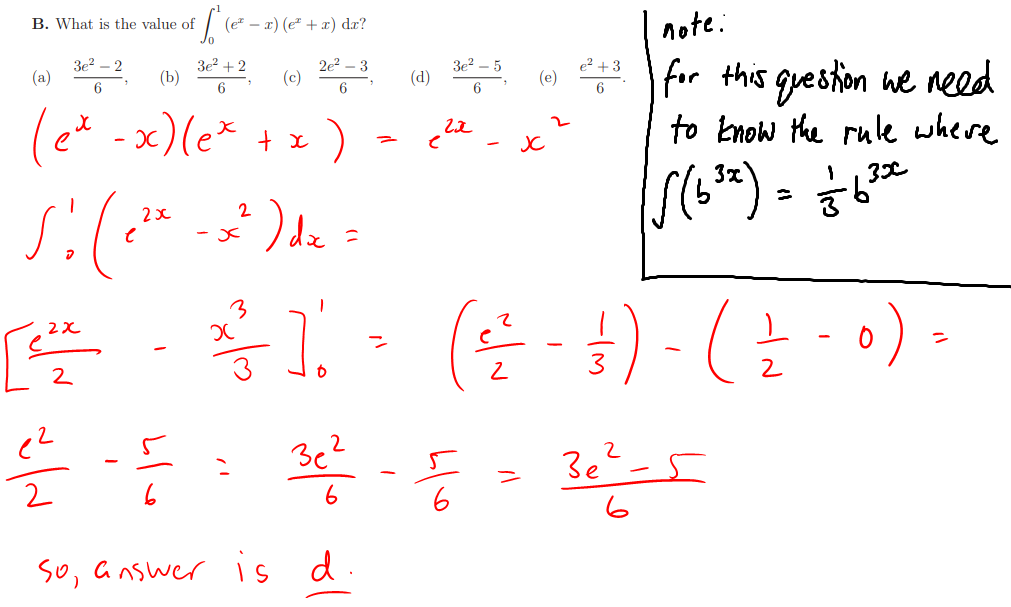 B. What is the value of ∫₀¹ (eˣ − x) (eˣ + x) dx?
(a) (3e² − 2)/6, (b) (3e² + 2)/6, (c) (2e² − 3)/6, (d) (3e² − 5)/6, (e) (e² + 3)/6.
note:
for this question we need
to know the rule where
∫(b³ˣ) = 1/3 b³ˣ
(eˣ - x)(eˣ + x) = e²ˣ - x²
∫₀¹ (e²ˣ - x²) dx =
[e²ˣ/2 - x³/3]₀¹ = (e²/2 - 1/3) - (1/2 - 0) =
e²/2 - 5/6 = 3e²/6 - 5/6 = (3e² - 5)/6
so, answer is d.